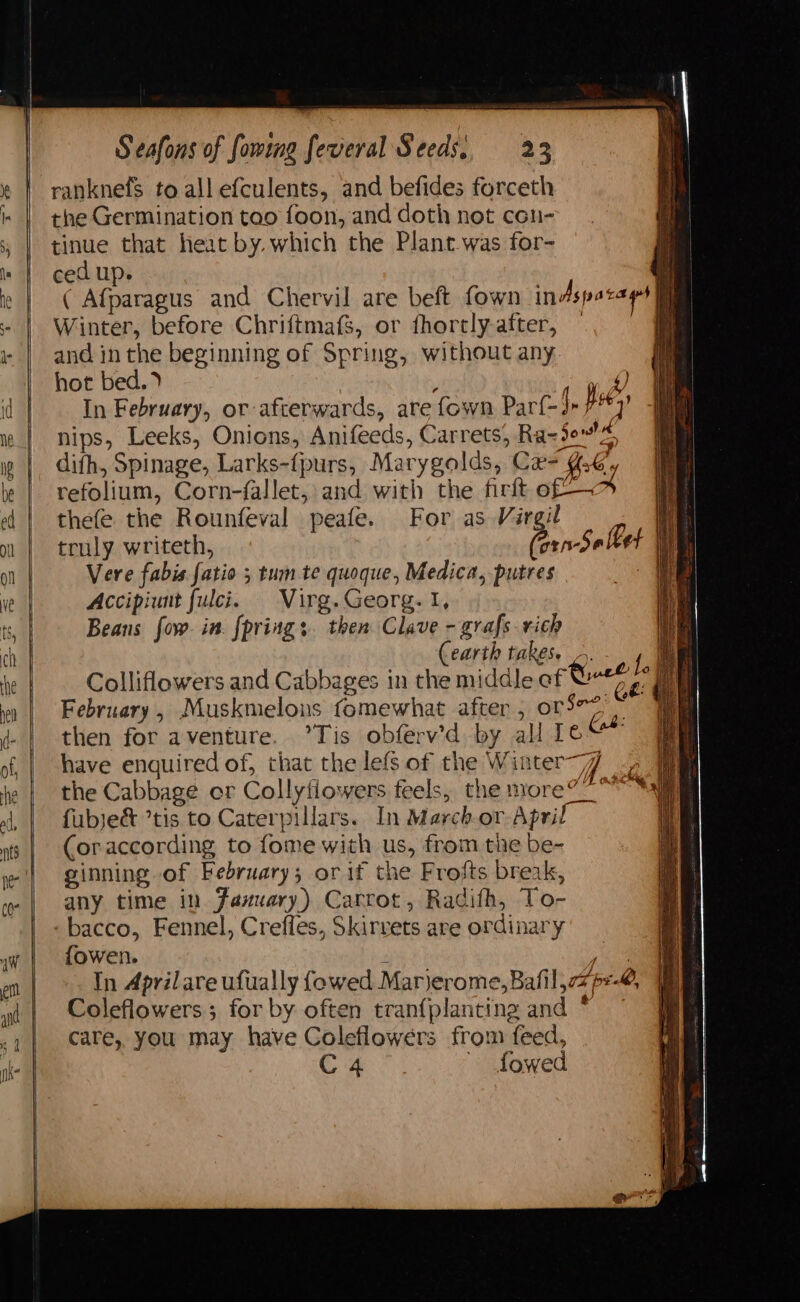 Seaſons of ſowing ſeveral Seeds, 23
rankneſs to all eſculents, and beſides forceth
the Germination too ſoon, and doth not con-
tinue that heat by which the Plant was for-
ced up.
( Aſparagus and Chervil are beſt ſown in
Winter, before Chriſtmaſs, or ſhortly after,
and in the beginning of Spring, without any
hot bed.)
In February, or afterwards, are ſown Parſ-
nips, Leeks, Onions, Aniſeeds, Carrets, Ra-
diſh, Spinage, Larks-ſpurs, Marygolds, Cæ-
refolium, Corn-ſallet, and with the firſt of
theſe the Rounſeval peaſe. For as Virgil
truly writeth,
Corn-Sallet
Vere fabis ſatio ; tum te quoque, Medica, putres
Accipiunt ſulci. Virg. Georg. 1,
Beans ſow in ſpring: then Clave-graſs rich
(earth takes.
Colliflowers and Cabbages in the middle of
February, Muskmelons ſomewhat after, or
then for aventure. 'Tis obſerv'd by all I
have enquired of, that the leſs of the Winter
the Cabbage or Collyflowers feels, the more
ſubject 'tis to Caterpillars. In March or April
(or according to ſome with us, from the be-
ginning of February; or if the Froſts break,
any time in January) Carrot, Radiſh, To-
bacco, Fennel, Creſſes, Skirrets are ordinary
ſowen.
In April are uſually ſowed Marjerome, Baſil,
Coleflowers; for by often tranſplanting and
care, you may have Coleflowers from ſeed,
C 4 ſowed